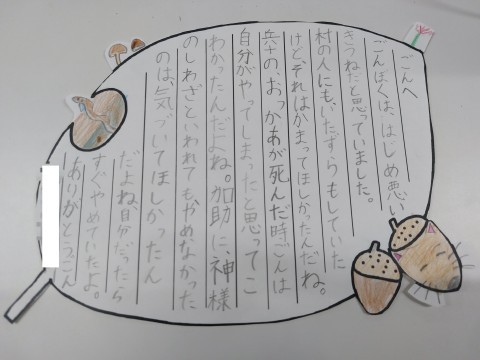 ごんへ
ごんぼくは、はじめ悪い
きつねだと思っていました。
村の人にも、いたずらもしていた
けど、それはかまってほしかったんだね。
兵十の、おっかあが死んだ時ごんは
自分がやってしまったと思ってこ
わかったんだよね。加助に、神様
のしわざといわれてもやめなかった
のは、気づいてほしかったん
だよね、自分だったら
すぐやめていたよ。
ありがとうごん